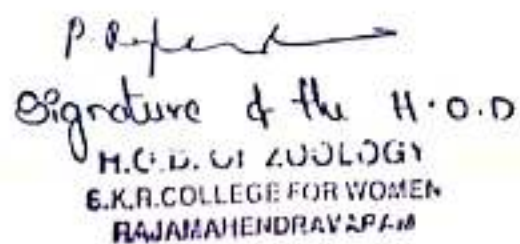 Signature of the H.O.D
H.O.D. OF ZOOLOGY
S.K.R.COLLEGE FOR WOMEN
RAJAMAHENDRAVARAM